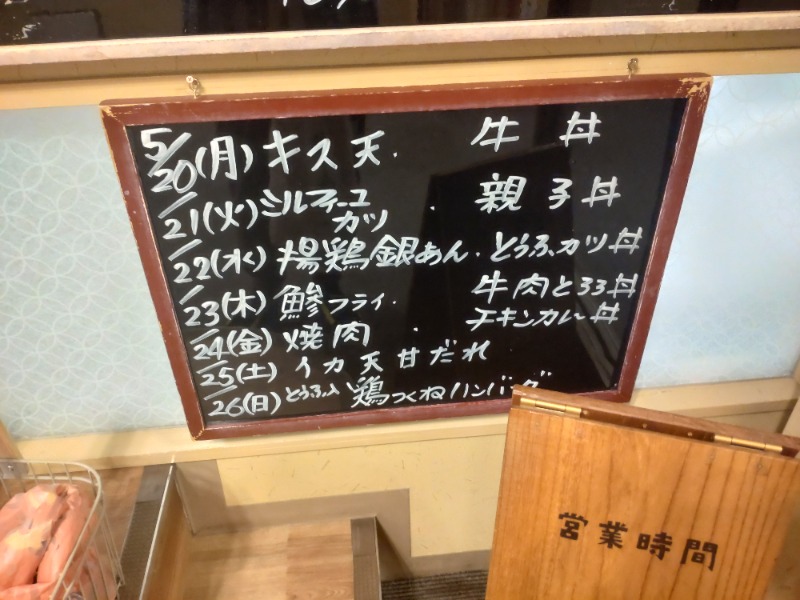 5/20(月)キス天. 牛丼
/21(火)ミルフィーユカツ . 親子丼
/22(水)揚鶏銀あん. とうふカツ丼
/23(木)鯵フライ. 牛肉とろろ丼
/24(金)焼肉 . チキンカレー丼
/25(土)イカ天甘だれ
/26(日)とうふ入鶏つくねハンバーグ
営業時間